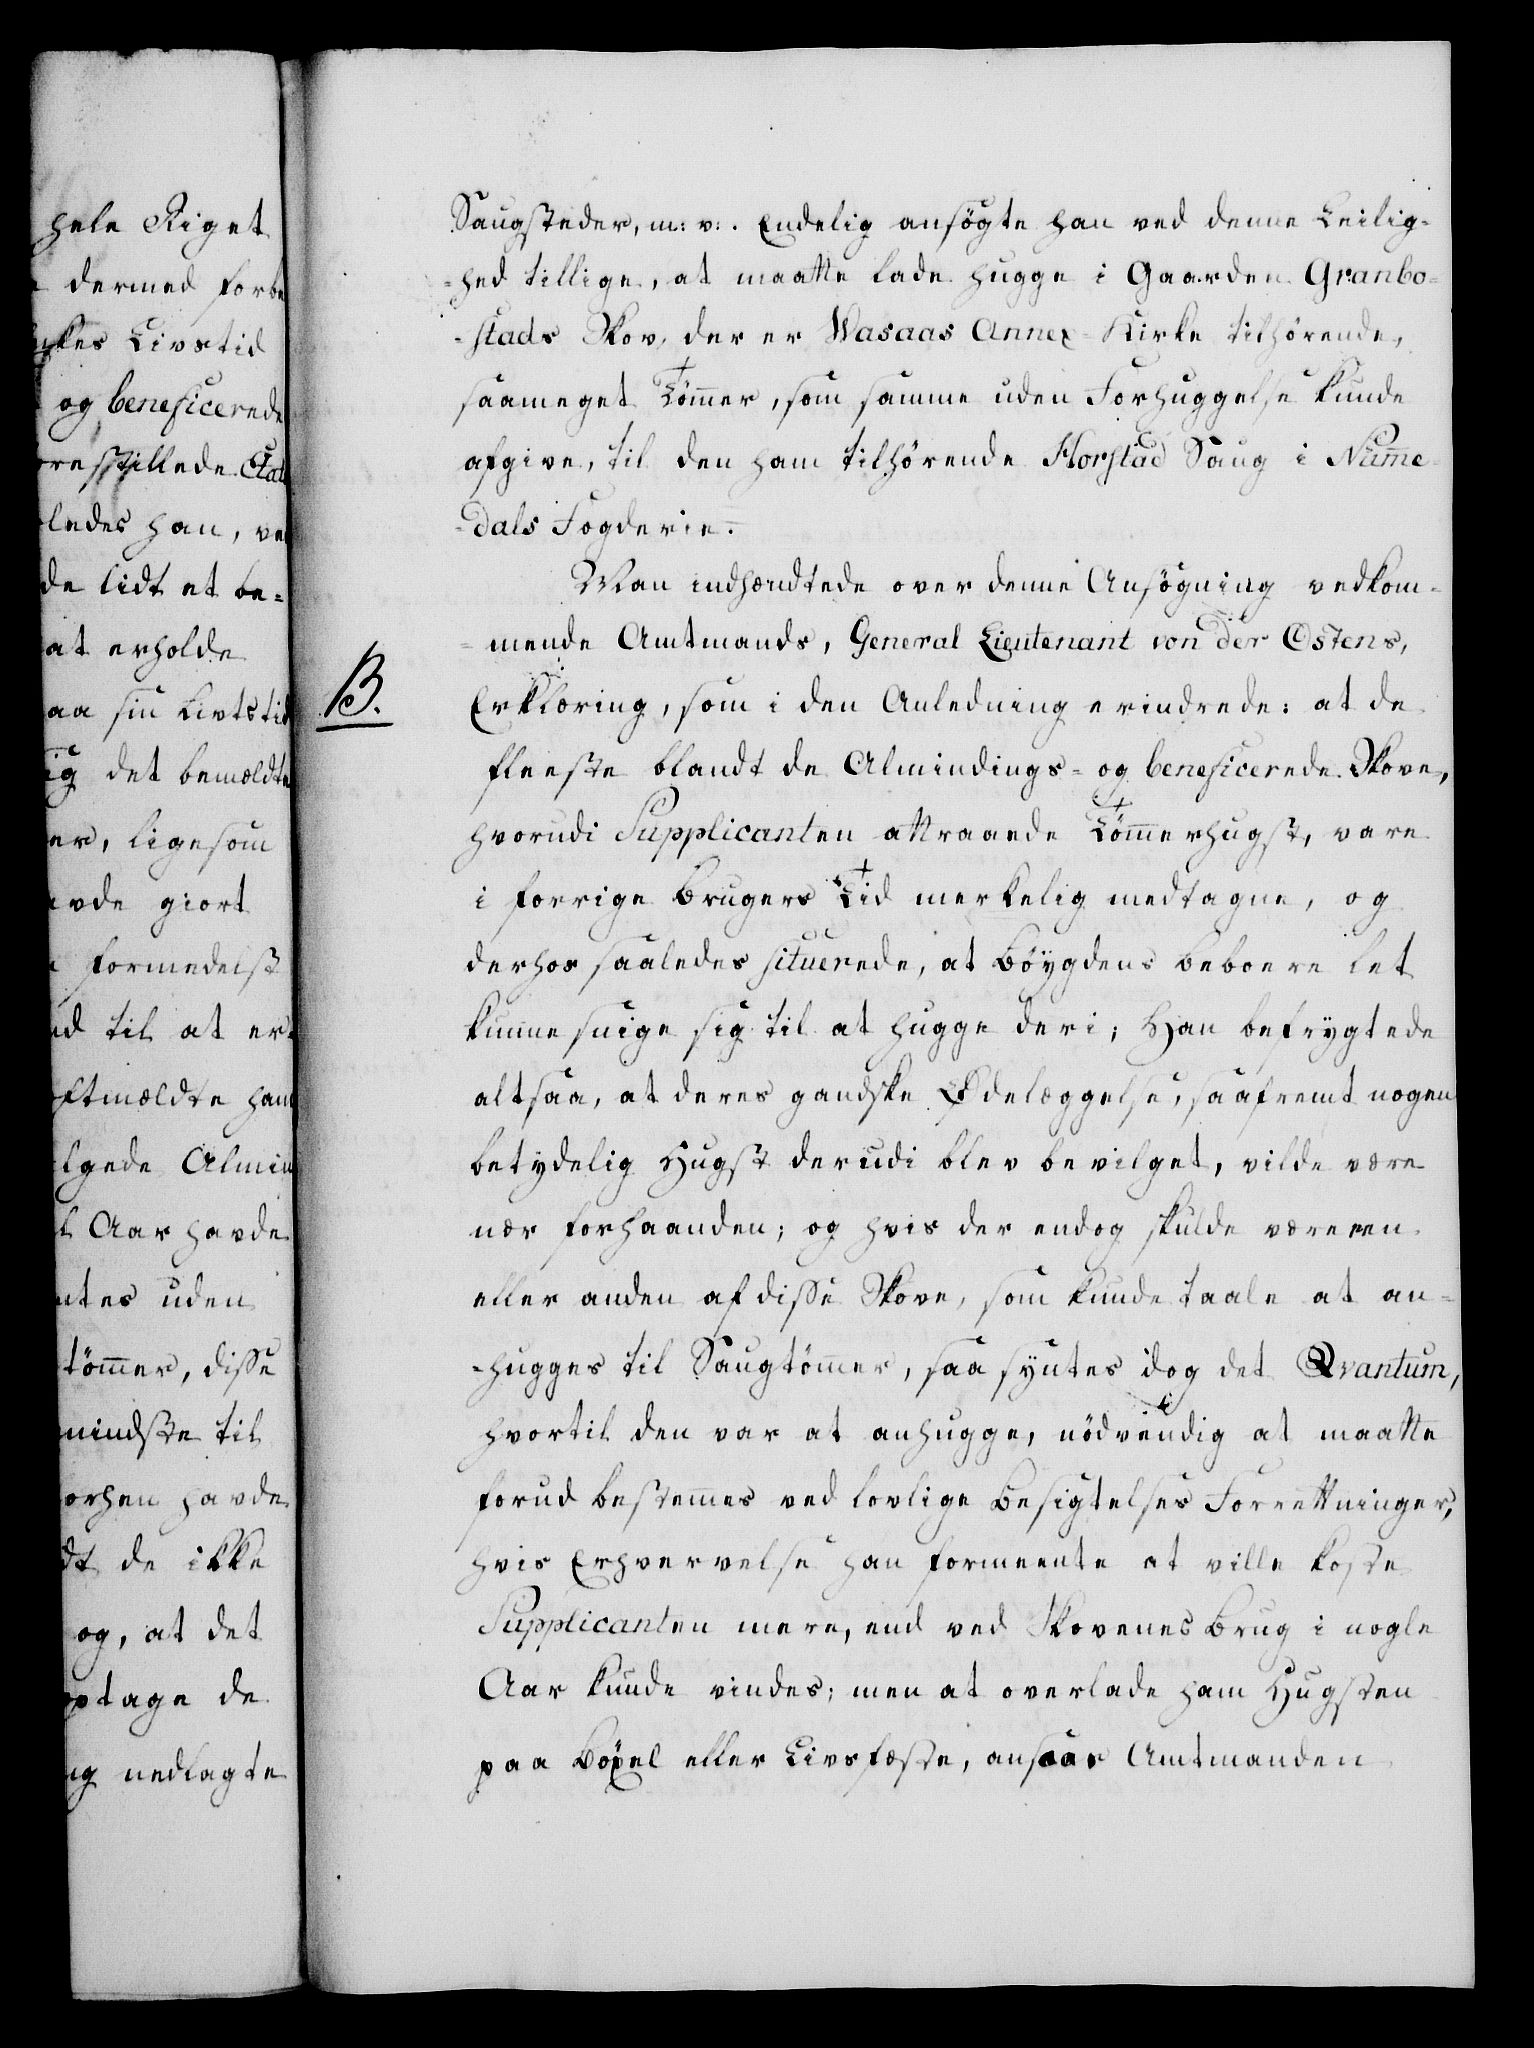 hele Riget
dermed forbe
ckes Livstid
og beneficerede
orestillede Etat
ledes han, ved
de lidt et be-
at erholde
aa sin Livtstid
ig det bemældte
er, ligesom
avde giort
formedelst
ed til at er-
oftmældte ham
lgede Almin
l Aar havde
ntes uden
tömmer, disse
mindste til
orhen havde
dt de ikke
og, at det
optage de
ng nedlagte
Saugsteder, m: v:. Endelig ansögte han ved denne Leilig-
-hed tillige, at maatte lade hugge i Gaarden Granbo-
-stads Skov, der er Wasaas Annex-Kirke tilhörende,
saameget Tömmer, som samme uden Forhuggelse kunde
afgive, til den ham tilhörende Horstad Saug i Numme-
-dals Fogderie.
Man indhændtede over denne Ansögning vedkom-
-mende Amtmands, General Lieutenant von der Ostens,
B.
Erklæring, som i den Anledning erindrede: at de
fleeste blandt de Almindings- og beneficerede Skove,
hvorudi Supplicanten attraaede Tömmerhugst, vare
i forrige Brugers Tid merkelig medtagne, og
derhos saaledes situerede, at Böygdens Beboere let
kunne snige sig til at hugge deri; Han befrygtede
altsaa, at deres gandske Ödelæggelse, saafremt nogen
betydelig Hugst derudi blev bevilget, vilde være
nær forhaanden; og hvis der endog skulde være een
eller anden af disse Skove, som kunde taale at an-
-hugges til Saugtömmer, saa syntes dog det Qvantum,
hvortil den var at anhugge, nödvendig at maatte
forud bestemmes ved lovlige Besigtelses Forrettninger,
hvis Erhvervelse han formeente at ville koste
Supplicanten mere, end ved Skovenes Brug i nogle
Aar kunde vindes; men at overlade ham Hugsten
paa Böxel eller Livsfæste, ansaae Amtmanden